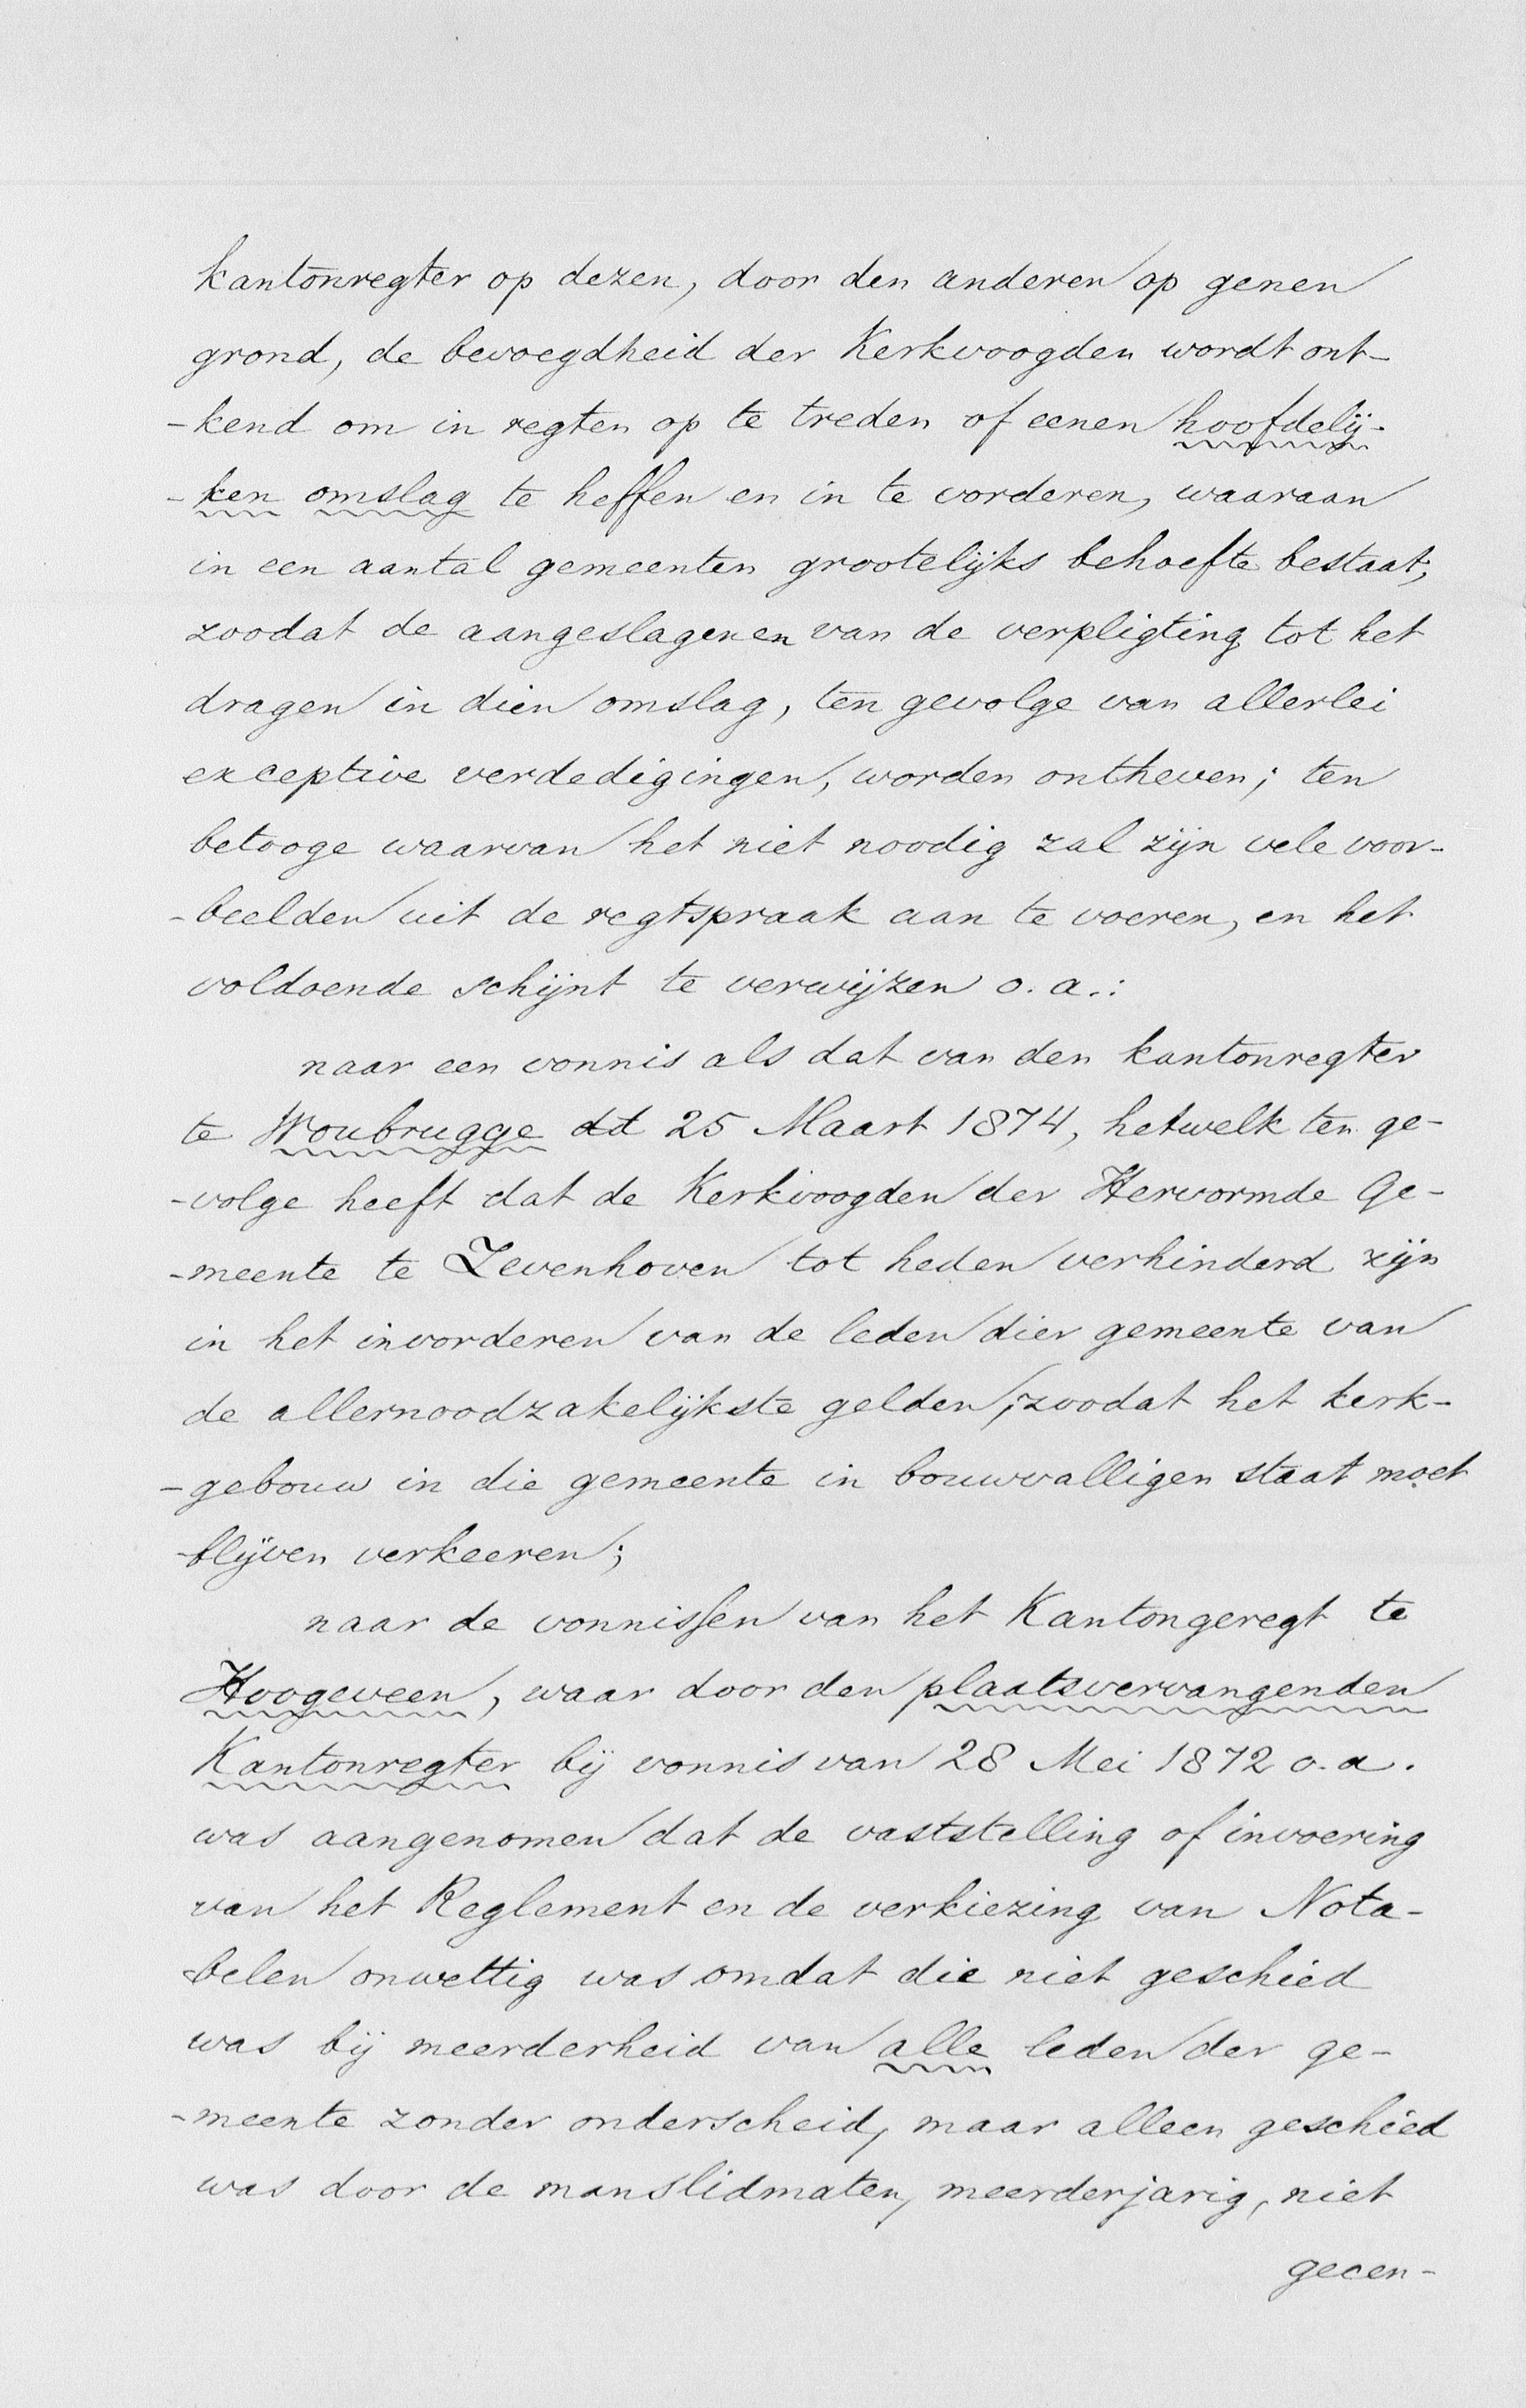 kantonregter op dezen, door den anderen op genen
grond, de bevoegdheid der Kerkvoogden wordt ont-
-kend om in regten op te treden of eenen hoofdelij-
-ken omslag te heffen en in te vorderen, waaraan
in een aantal gemeenten grootelijks behoefte bestaat,
zoodat de aangeslagenen van de verpligting tot het
dragen in dien omslag, ten gevolge van allerlei
exceptive verdedigingen, worden ontheven; ten
betooge waarvan het niet noodig zal zijn vele voor-
-beelden uit de regtspraak aan te voeren, en het
voldoende schijnt te verwijzen o.a.:
naar een vonnis als dat van den kantonregter
te Woubrugge dd 25 Maart 1874, hetwelk ten ge-
-volge heeft dat de Kerkvoogden der Hervormde Ge-
-meente te Zevenhoven tot heden verhinderd zijn
in het invorderen van de leden dier gemeente van
de allernoodzakelijkste gelden, zoodat het kerk-
-gebouw in die gemeente in bouwvalligen staat moet
-blijven verkeeren;
naar de vonnissen van het Kantongeregt te
Hoogeveen, waar door den plaatsvervangenden
Kantonregter bij vonnis van 28 Mei 1872 o.a.
was aangenomen dat de vaststelling of invoering
van het Reglement en de verkiezing van Nota-
-belen onwettig was omdat die niet geschied
was bij meerderheid van alle leden der ge-
-meente zonder onderscheid, maar alleen geschied
was door de manslidmaten, meerderjarig, niet
gecen-